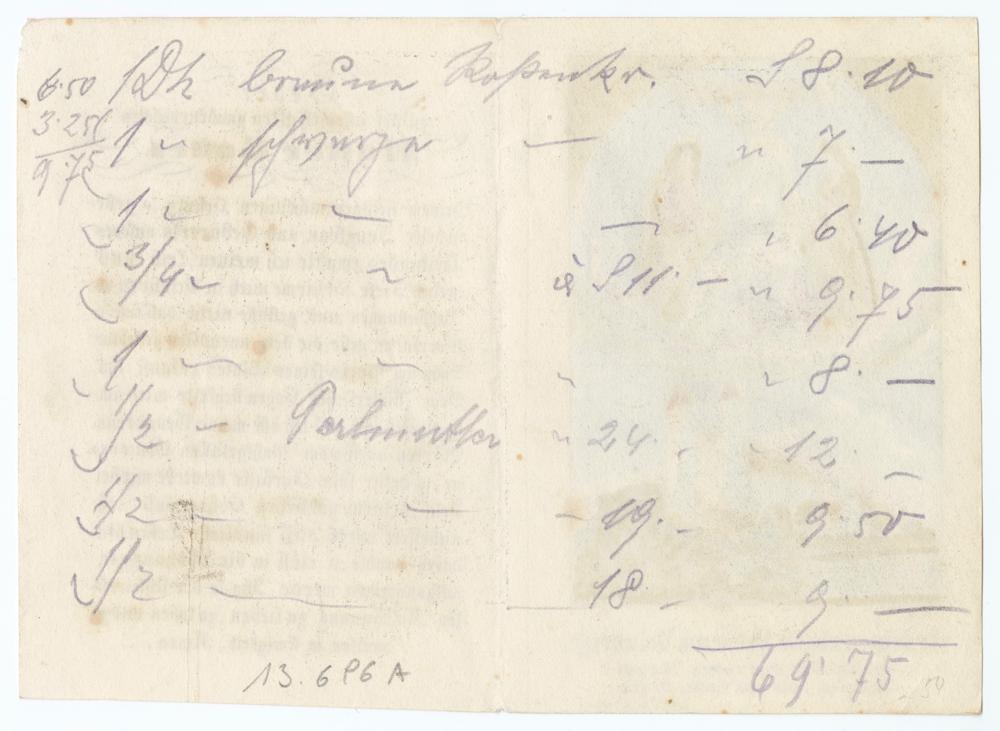 6.50
3.25
9.75
1 Dz braune Rosenkr. S 8.10
1 " schwarze — " 7.—
1 " — — " 6.40
3/4 " " à S 11.— " 9.75
1 " " " 8.—
1/2 " Perlmutter " 24. 12.—
1/2 — — — 19.— 9 50
1/2 — 18.— 9 —
69.75
50
13.696 A